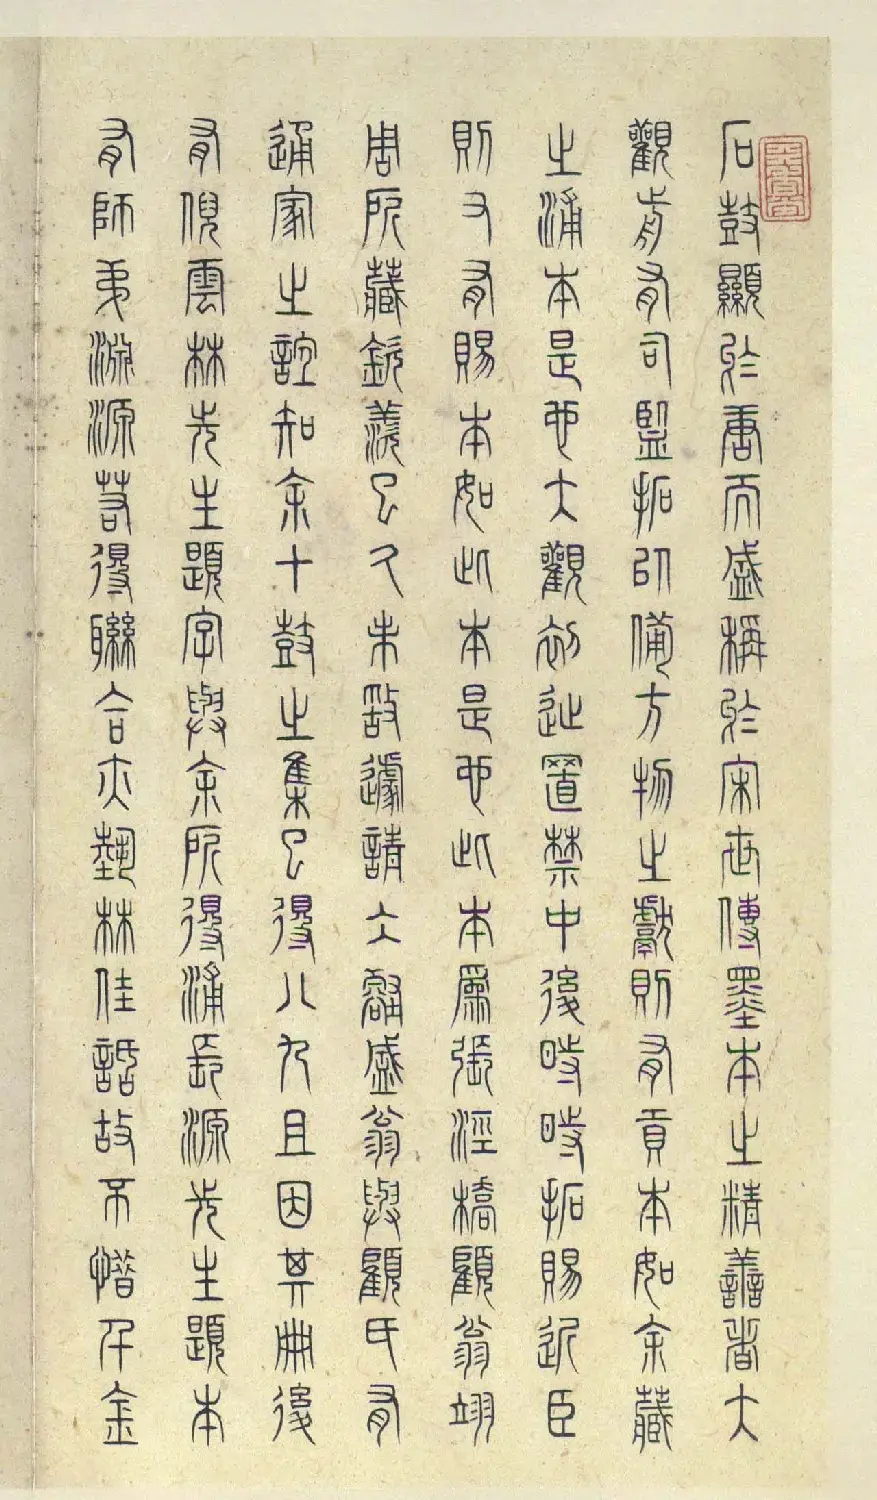 石鼓顯於唐而盛稱於宋世傳墨本之精善者大
觀前有司監拓以備方物之獻則有貢本如余藏
之浦本是也大觀初徙置禁中後時時拓賜近臣
則又有賜本如此本是也此本為張涇橋顧翁翊
周所藏欽羨已久未敢遽請六谿盛翁與顧氏有
通家之誼知余十鼓之集已得八九且因其冊後
有倪雲林先生題字與余所得浦長源先生題本
有師弟淵源若得聯合亦藝林佳話故不惜千金